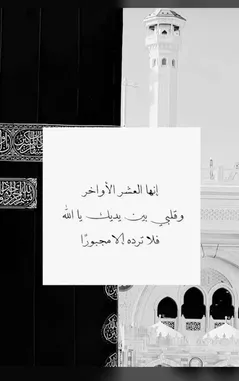 إنها العشر الأواخر
وقلبي بين يديك يا الله
فلا ترده إلا مجبورًا